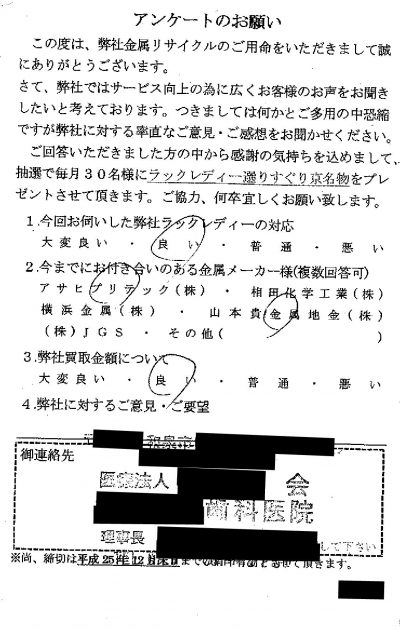 アンケートのお願い
この度は、弊社金属リサイクルのご用命をいただきまして誠
にありがとうございます。
さて、弊社ではサービス向上の為に広くお客様のお声をお聞き
したいと考えております。つきましては何かとご多用の中恐縮
ですが弊社に対する率直なご意見・ご感想をお聞かせください。
ご回答いただきました方の中から感謝の気持ちを込めまして、
抽選で毎月30名様にラックレディー選りすぐり京名物をプレ
ゼントさせて頂きます。ご協力、何卒宜しくお願い致します。
1.今回お伺いした弊社ラックレディーの対応
大変良い・良い・普通・悪い
2.今までにお付き合いのある金属メーカー様(複数回答可)
アサヒプリテック(株)・相田化学工業(株)
横浜金属(株)・山本貴金属地金(株)
(株)JGS・その他( )
3.弊社買取金額について
大変良い・良い・普通・悪い
4.弊社に対するご意見・ご要望
和泉市
御連絡先
医療法人 会
歯科医院
理事長
して下さい
※尚、締切は平成25年12月末日まで
させて頂きます。